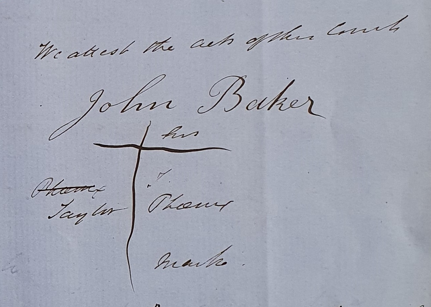 We attest the acts of this Court
John Baker
his
Phoenix
Taylor Phoenix
mark.